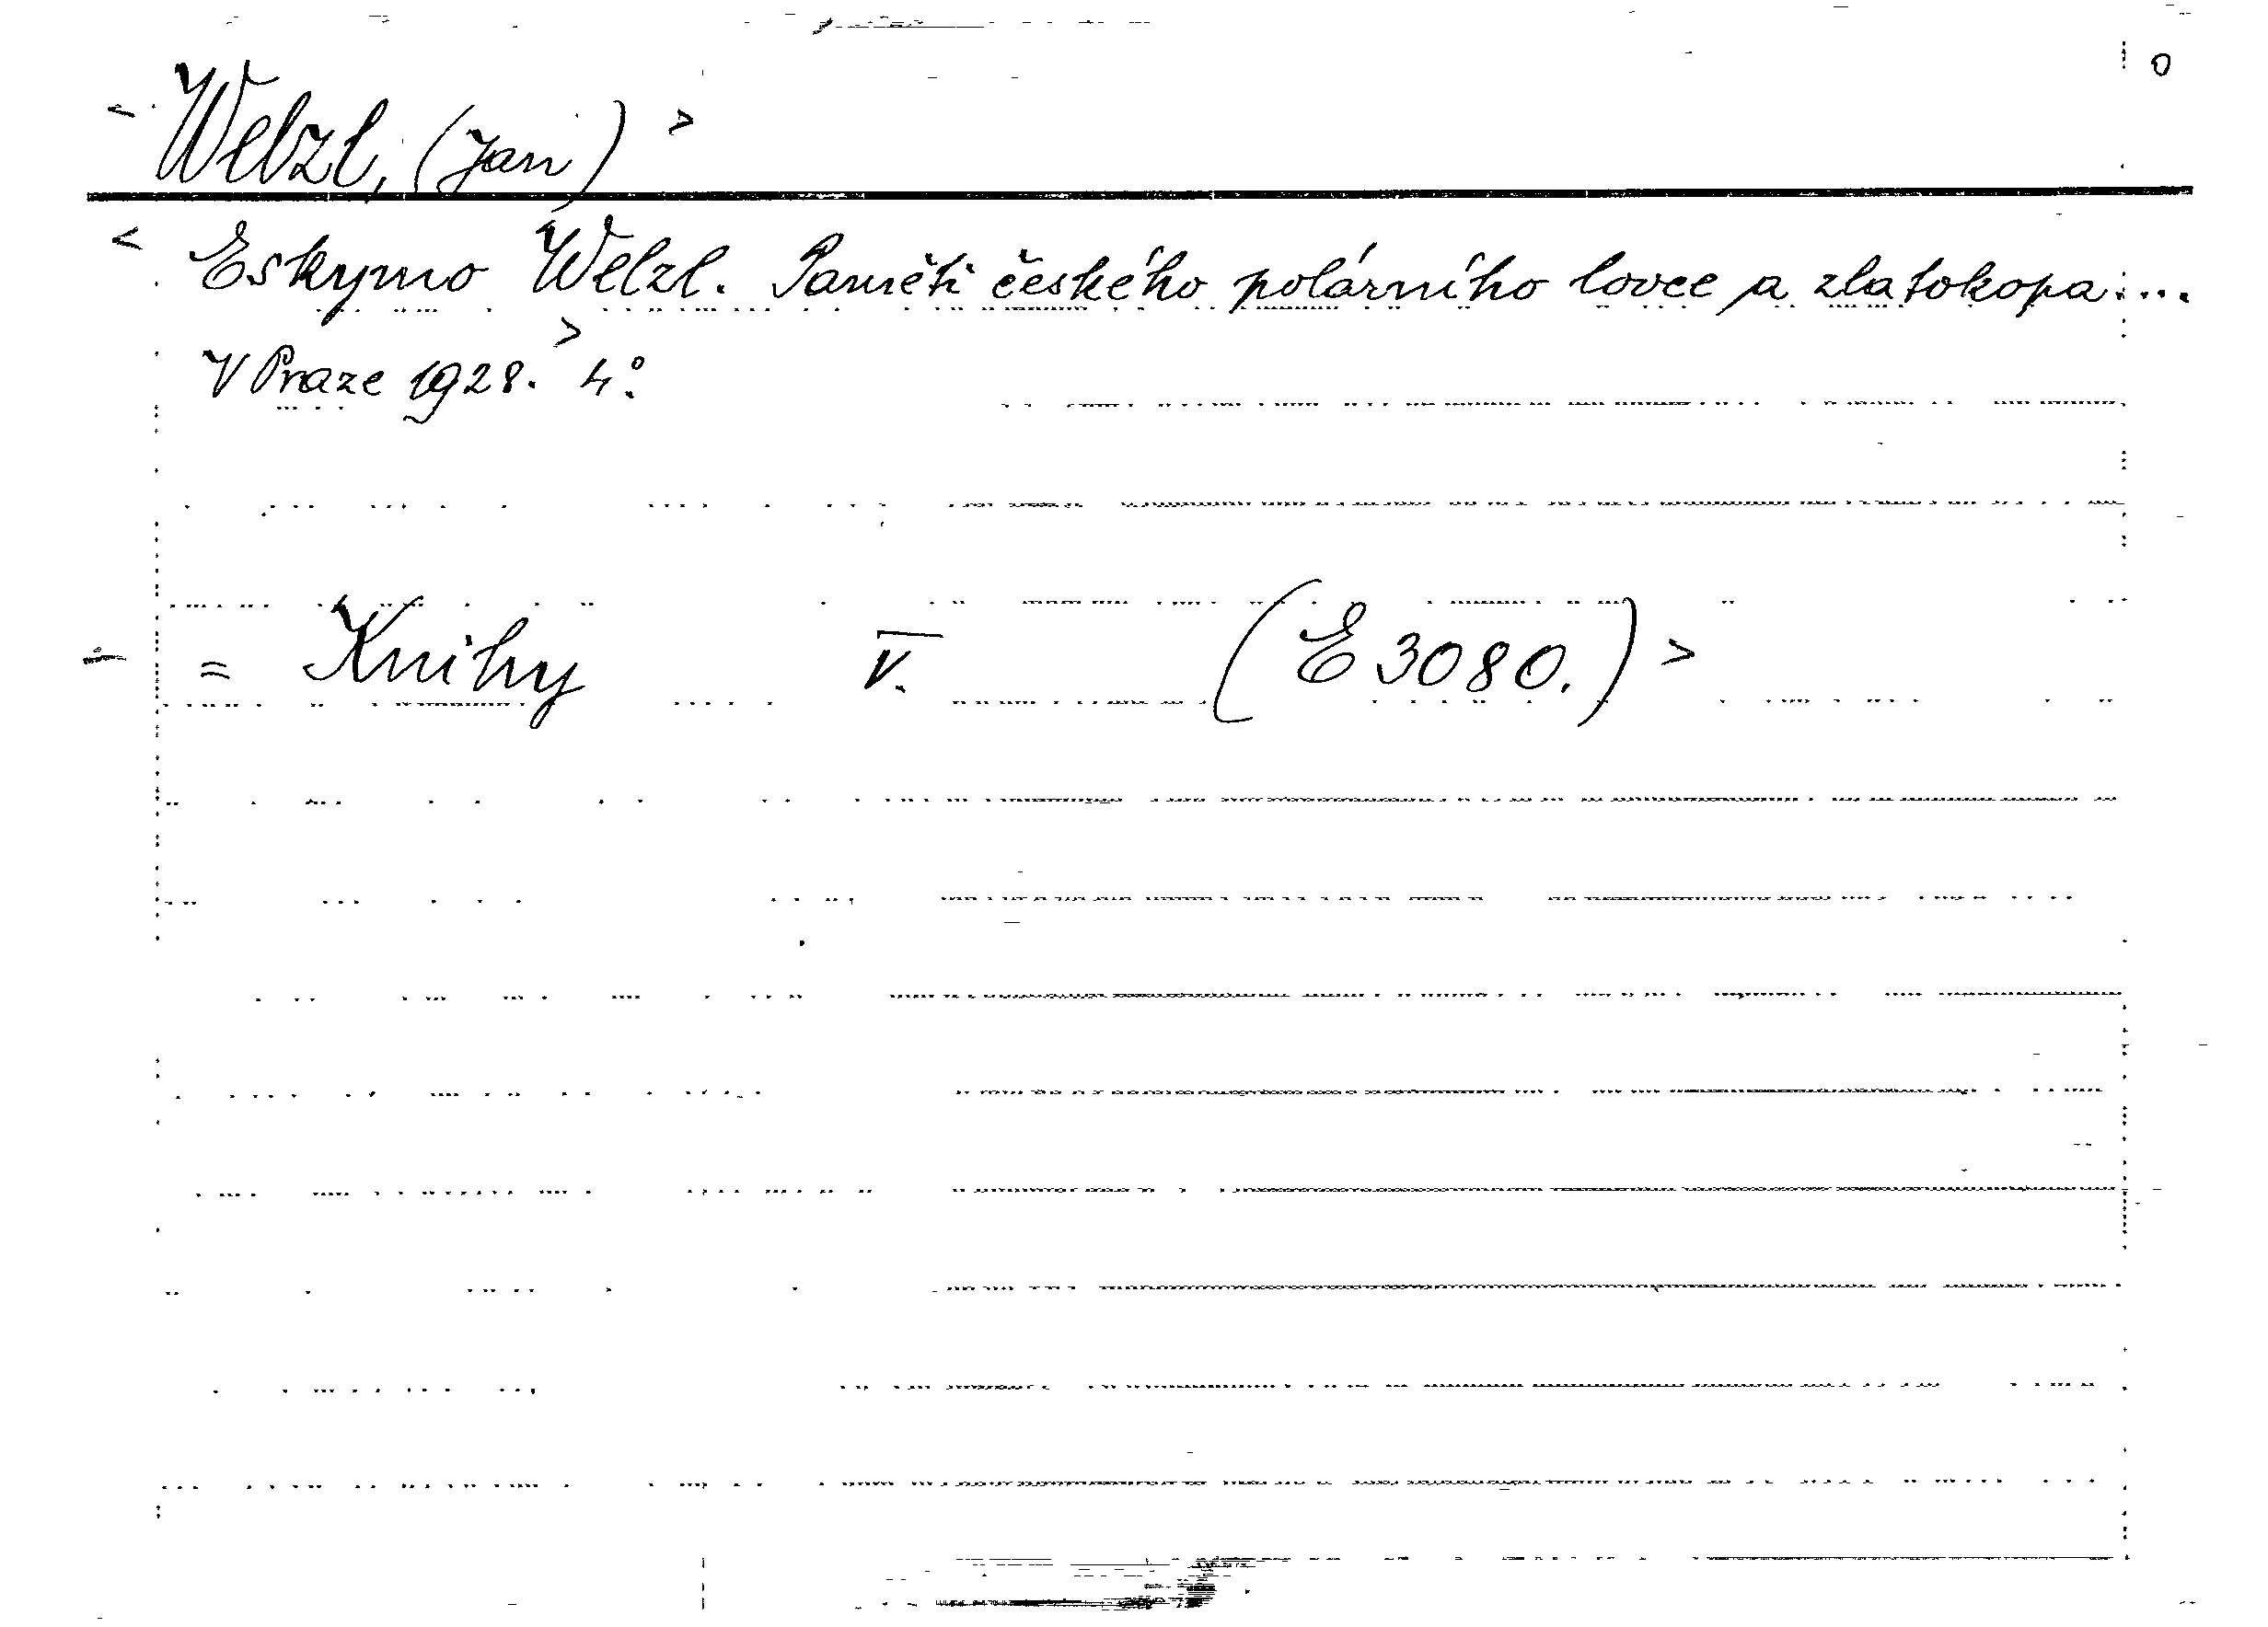 < Welzl, (Jan) > 0
< Eskymo Welzl. Paměti českého polárního lovce a zlatokopa....
V Praze 1928. > 4°.
= Knihy V. (E 3080.) >